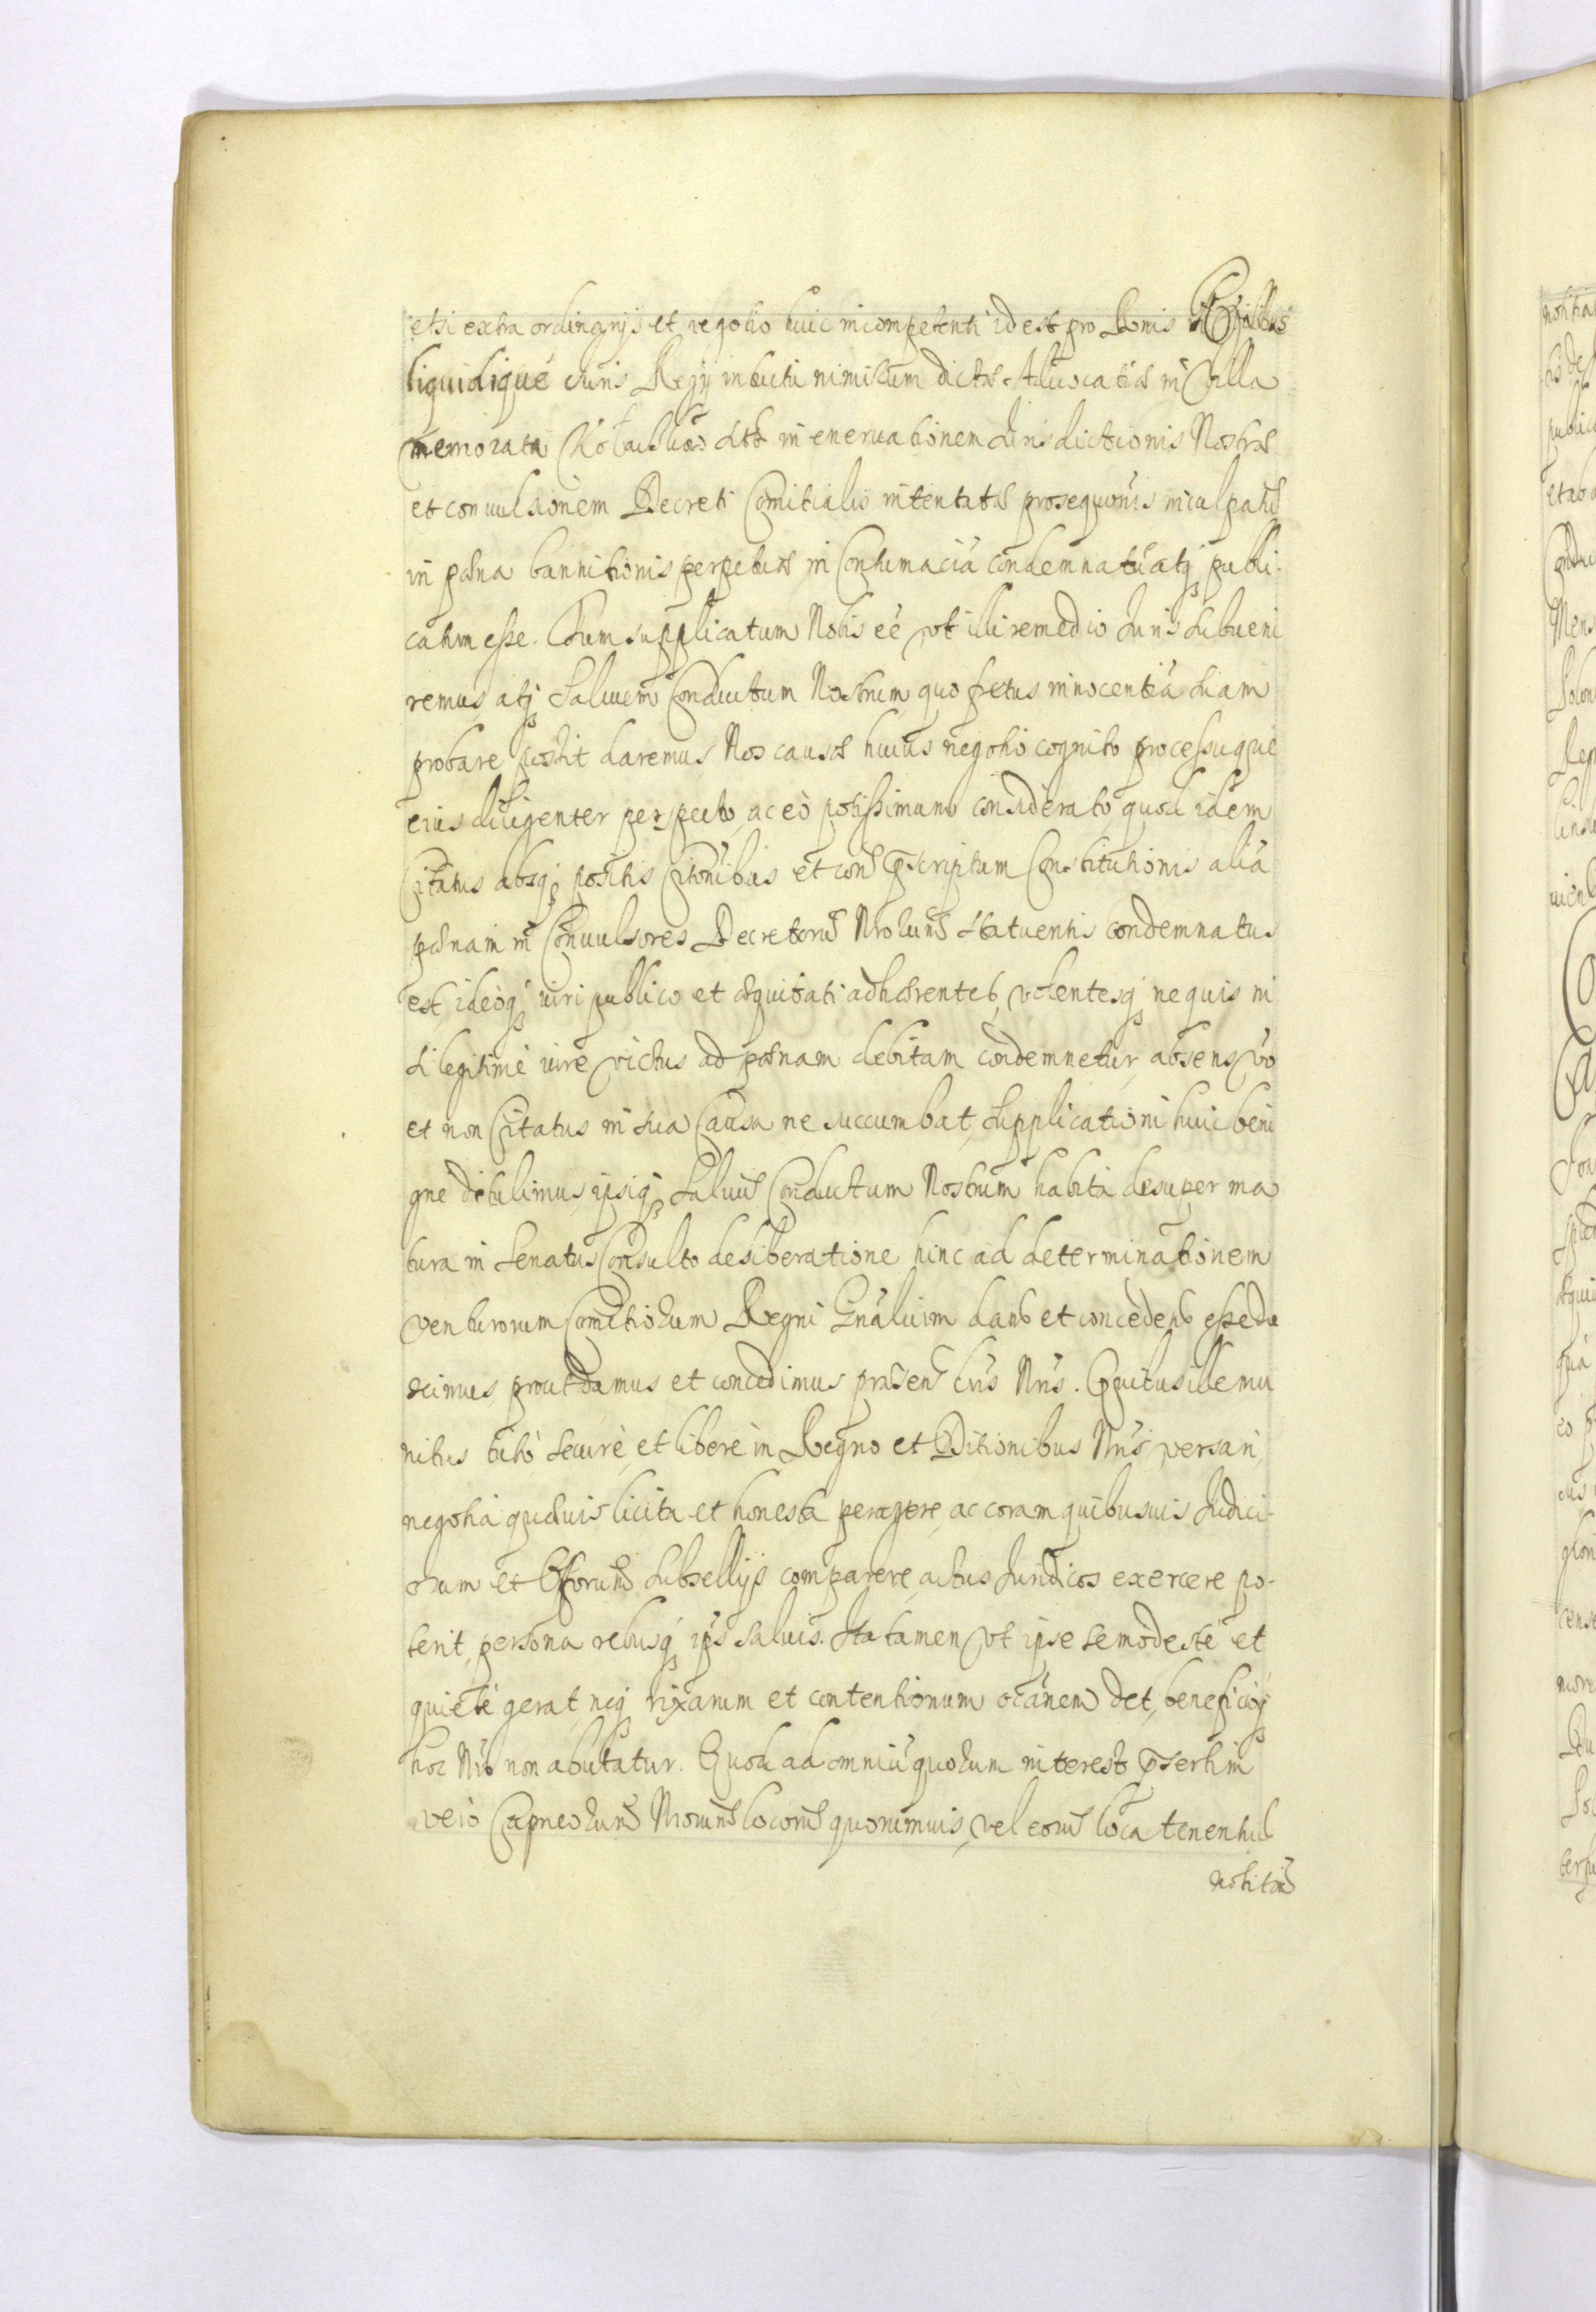 etsi extra ordinarijs et negotio huic incompetenti id est pro Bonis
liquidique Juris Regij indutu nimirum dictæ Aduocatiæ in Villa
memorata in eneruationem Jurisdictionis Nostræ
et conuulsionem Decreti Comitialis intentatæ inculpatæ
in pœna bannitionis perpetuæ in Contumaciã condemnatũ atq̃ publi-
catum esse. Cum supplicatum Nobis eẽ vt illi remedio Juris subueni
remus, atq̃ Saluum Conductum Nostrum, quo fretus innocentiã suam
probare possit daremus, Nos causa huius negotio cognito processuque
eius diligenter perspecto, ac eo potissimum considerato, quod idem
Citatus absq̃ positis Citõnibus et constitutionis aliã
pœnam in Conuulsores Decretorũ Nrorum statuentis condemnatus
est, ideoq̃ iuri publico et æquitati adhærentes, volentesq̃ ne quis ni
si legitime iure victus ad pœnam debitam condemnetur, absens vo
et non Citatus in sua Causa ne succumbat, supplicationi huic beni
gne detulimus, ipsiq̃ Saluũ Conductum Nostrum habita desuper ma
tura in Senatus Consulto deliberatione hinc ad determinationem
venturorum Comitiorum Regni Gnãlium dand et concedend esse du
ximus, prout damus et concedimus præsen lris Nris. Quibus ille mu
nitus tuto, secure, et libere in Regno et Ditionibus Nris versari,
negotia quæuis licita et honesta peragere, ac coram quibusuis Judici-
orum et Offorum Subsellijs comparere, actus Juridicos exercere po-
terit, persona rebusq̃ ips̃ saluis. Ita tamen vt ipse se modeste et
quiete gerat, neq̃ rixarum et contentionum occãnem det, beneficioq̃
hoc Nro non abutatur. Quod ad omniũ quorum interest p̃sertim
vero Capneorum Nrorum locorũ quorumuis, vel eorũ loca tenentiũ
notitiã